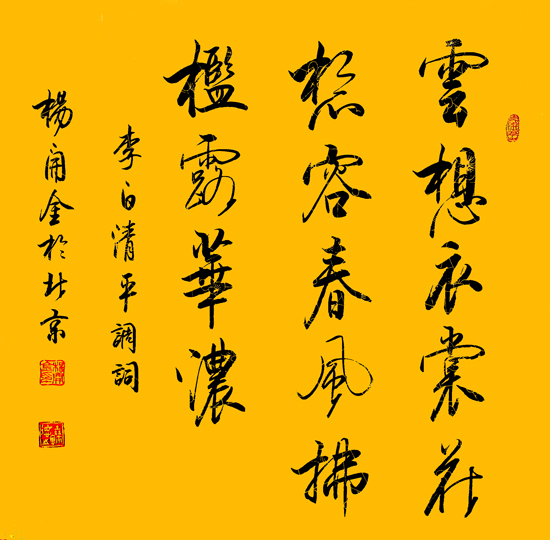 雲想衣裳花
想容春風拂
檻露華濃
李白清平調詞
楊開金於北京